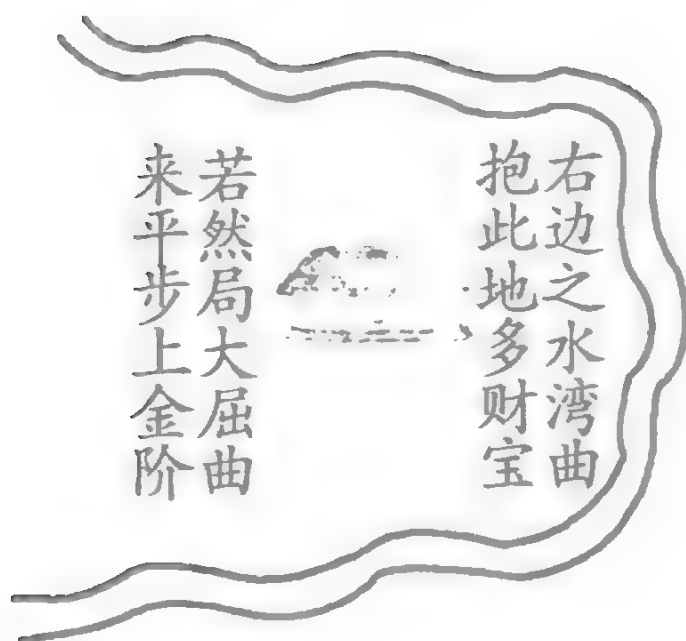 右边之水湾曲
抱此地多财宝
若然局大屈曲
来平步上金阶